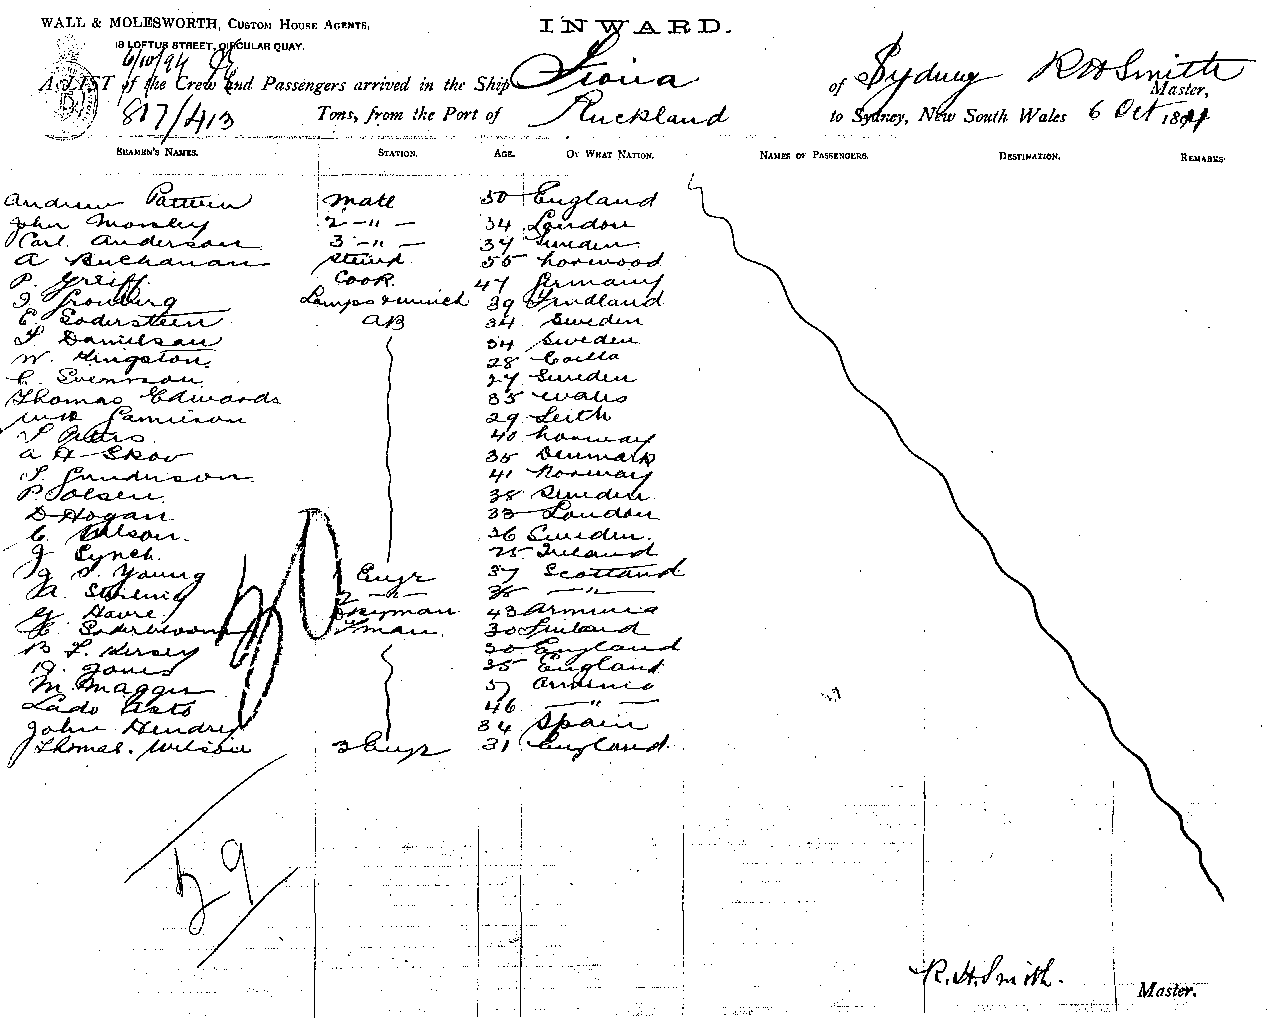 WALL & MOLESWORTH, CUSTOM HOUSE AGENTS,
INWARD.
18 LOFTUS STREET, CIRCULAR QUAY.
6/10/94
A LIST of the Crew and Passengers arrived in the Ship Fiona of Sydney R H Smith Master,
817/413 Tons, from the Port of Auckland to Sydney, New South Wales 6 Oct 1894
SEAMEN'S NAMES. STATION. AGE. OF WHAT NATION. NAMES OF PASSENGERS. DESTINATION. REMARKS.
Andrew mate 50 England
John Morsley 2 -"- 34 London
Carl Anderson 3 -"- 34 Sweden
A Buchanan Steward 55 Norwood
P. Greiff Cook 47 Germany
Gronberg Lamps & winch 39 Findland
E. Soderstein AB 34 Sweden
Danielsan 34 Sweden
W. Kingston 28
C. Svennson 27 Sweden
Thomas Edwards 35 Wales
Wm Jamieson 29 Leith
Peters 40 Norway
A H Skov 35 Denmark
Gunderson 41 Norway
P. Olsen 38 Sweden
D Hogan 33 London
C. Wilson 26 Sweden
J Lynch 25 Ireland
J. S. Young Engr 37 Scotland
2 -"- -"-
Havre 43 Armenia
Soderbloom Fman 30 Finland
B. L. Hersey 30 England
Jones 35 England
M. Magger 57 Armenia
Lado 46 -"-
John Hendry 34 Spain
Thomas Wilson 3 Engr 31 England
29
R. H. Smith. Master.